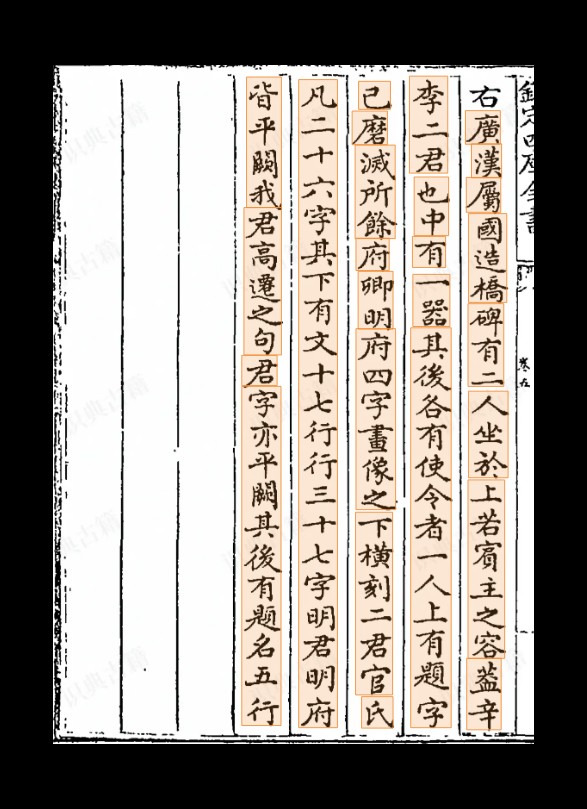 欽定四庫全書
卷五
右廣漢屬國造橋碑有二人坐於上若賓主之容葢辛
李二君也中有一器其後各有使令者一人上有題字
已磨滅所餘府卿明府四字畫像之下橫刻二君官氏
凡二十六字其下有文十七行行三十七字明君明府
皆平闕我君高遷之句君字亦平闕其後有題名五行